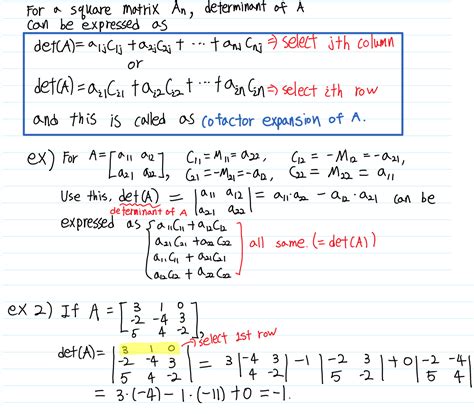 For a square matrix An, determinant of A
can be expressed as
det(A) = a1jC1j + a2jC2j + ··· + anjCnj ⇒ select jth column
or
det(A) = ai1Ci1 + ai2Ci2 + ··· + ainCin ⇒ select ith row
and this is called as cofactor expansion of A.
ex) For A = [a11 a12; a21 a22], C11 = M11 = a22, C12 = -M12 = -a21,
C21 = -M21 = -a12, C22 = M22 = a11
Use this, det(A) = |a11 a12; a21 a22| = a11·a22 - a12·a21 can be
determinant of A
expressed as { a11C11 + a12C12
a21C21 + a22C22
a11C11 + a21C21
a12C12 + a22C22 } all same. (= det(A))
ex 2) If A = [3 1 0; -2 -4 3; 5 4 -2],
→ select 1st row
det(A) = |3 1 0; -2 -4 3; 5 4 -2| = 3 |-4 3; 4 -2| - 1 |-2 3; 5 -2| + 0 |-2 -4; 5 4|
= 3·(-4) - 1·(-11) + 0 = -1.